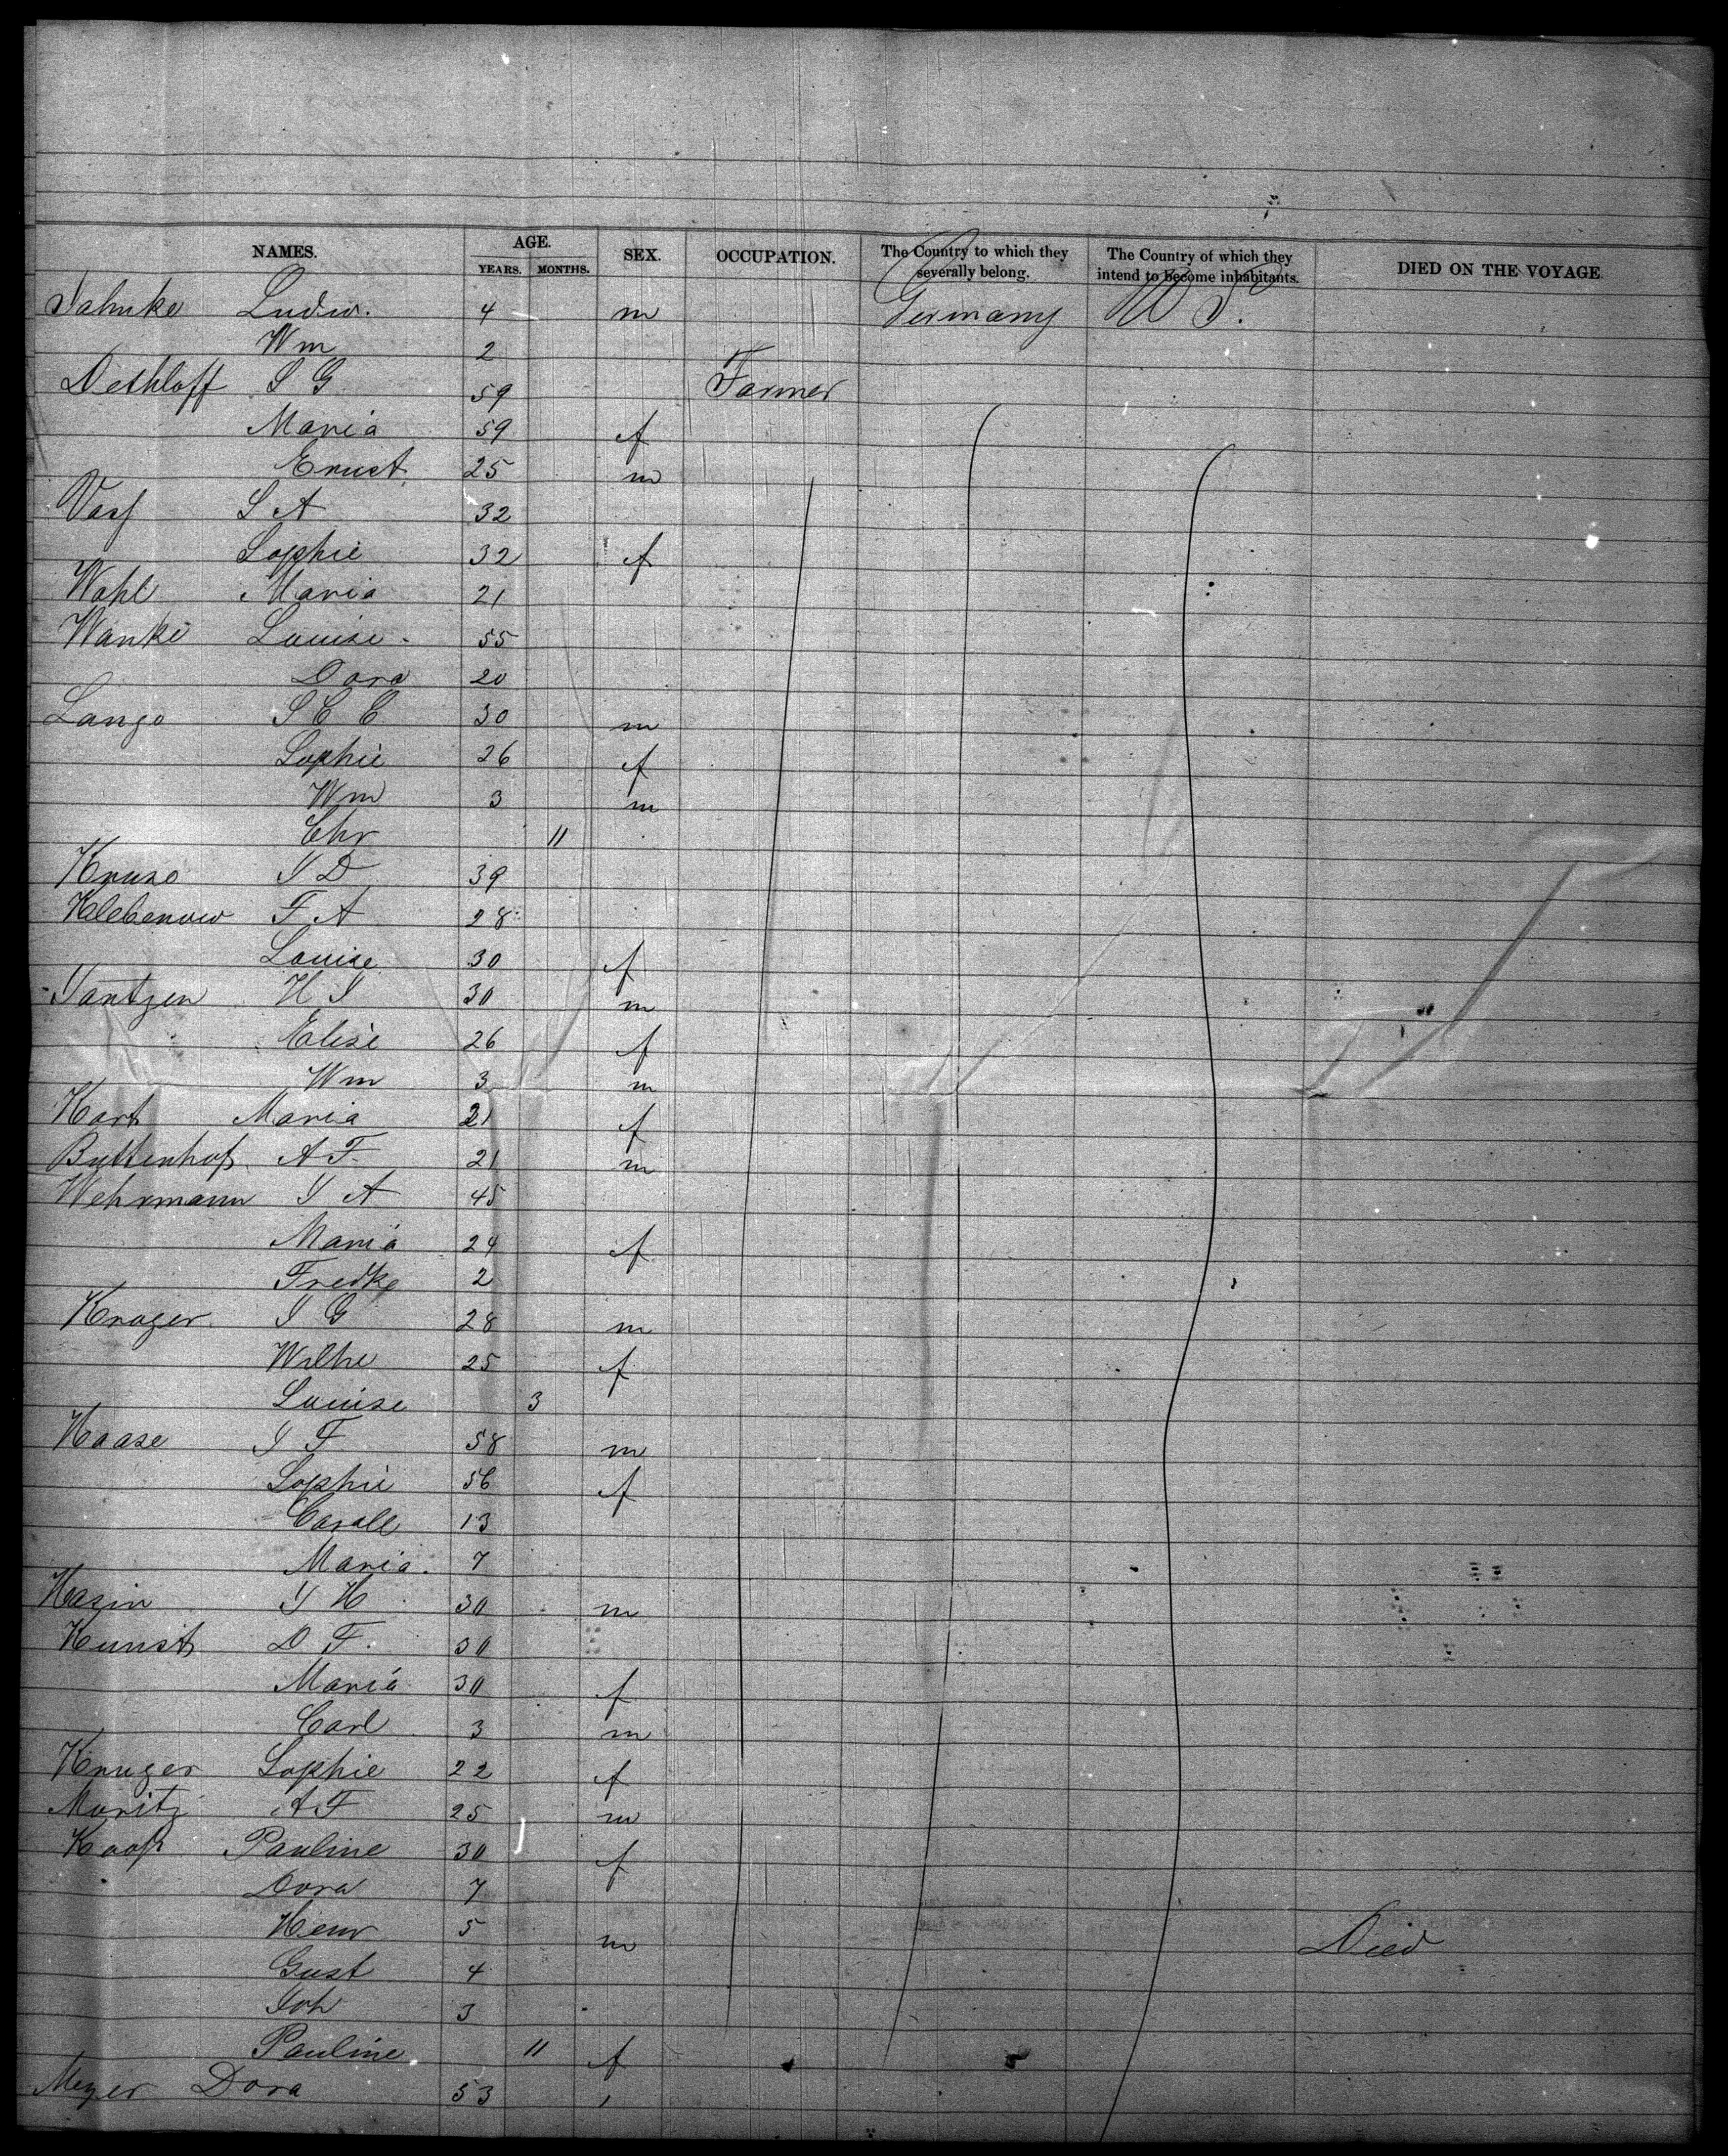 NAMES. AGE. SEX. OCCUPATION. The Country to which they severally belong. The Country of which they intend to become inhabitants. DIED ON THE VOYAGE.
YEARS. MONTHS.
Jahnke Ludw. 4 m Germany U S.
Wm 2
Dethloff J G 59 Farmer
Maria 59 f
Ernst 25 m
Vass J A 32
Sophie 32 f
Wahl Maria 21
Wanke Louise 55
Dora 20
Lange J C C 30 m
Sophie 26 f
Wm 3 m
Chr 11
Kruse J D 39
Klebenow F A 28
Louise 30 f
Jantzen H J 30 m
Elise 26 f
Wm 3 m
Kort Maria 21 f
Buttenhof A F 21 m
Wehrmann J A 45
Maria 24 f
Fredke 2
Kruger J G 28 m
Wilhe 25 f
Louise 3
Haase J F 58 m
Sophie 56 f
Caroll 13
Maria 7
Hasin J H 30 m
Kunst D F 30
Maria 30 f
Carl 3 m
Kruger Sophie 22 f
Moritz A F 25 m
Koop Pauline 30 f
Dora 7
Henr 5 m Died
Gust 4
Joh 3
Pauline 11 f
Meyer Dora 53